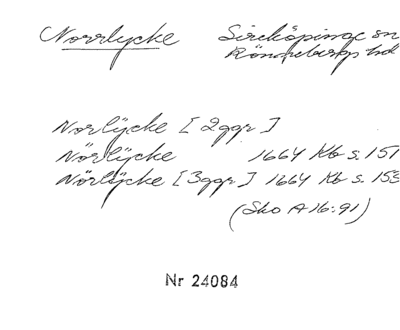 Norrlycke Sireköpinge sn
Rönnebergs hd
Norlÿcke [2ggr]
Nörlÿcke 1664 Kb s. 151
Nörlÿcke [3ggr] 1664 Kb s. 153
(Sko A 16:91)
Nr 24084